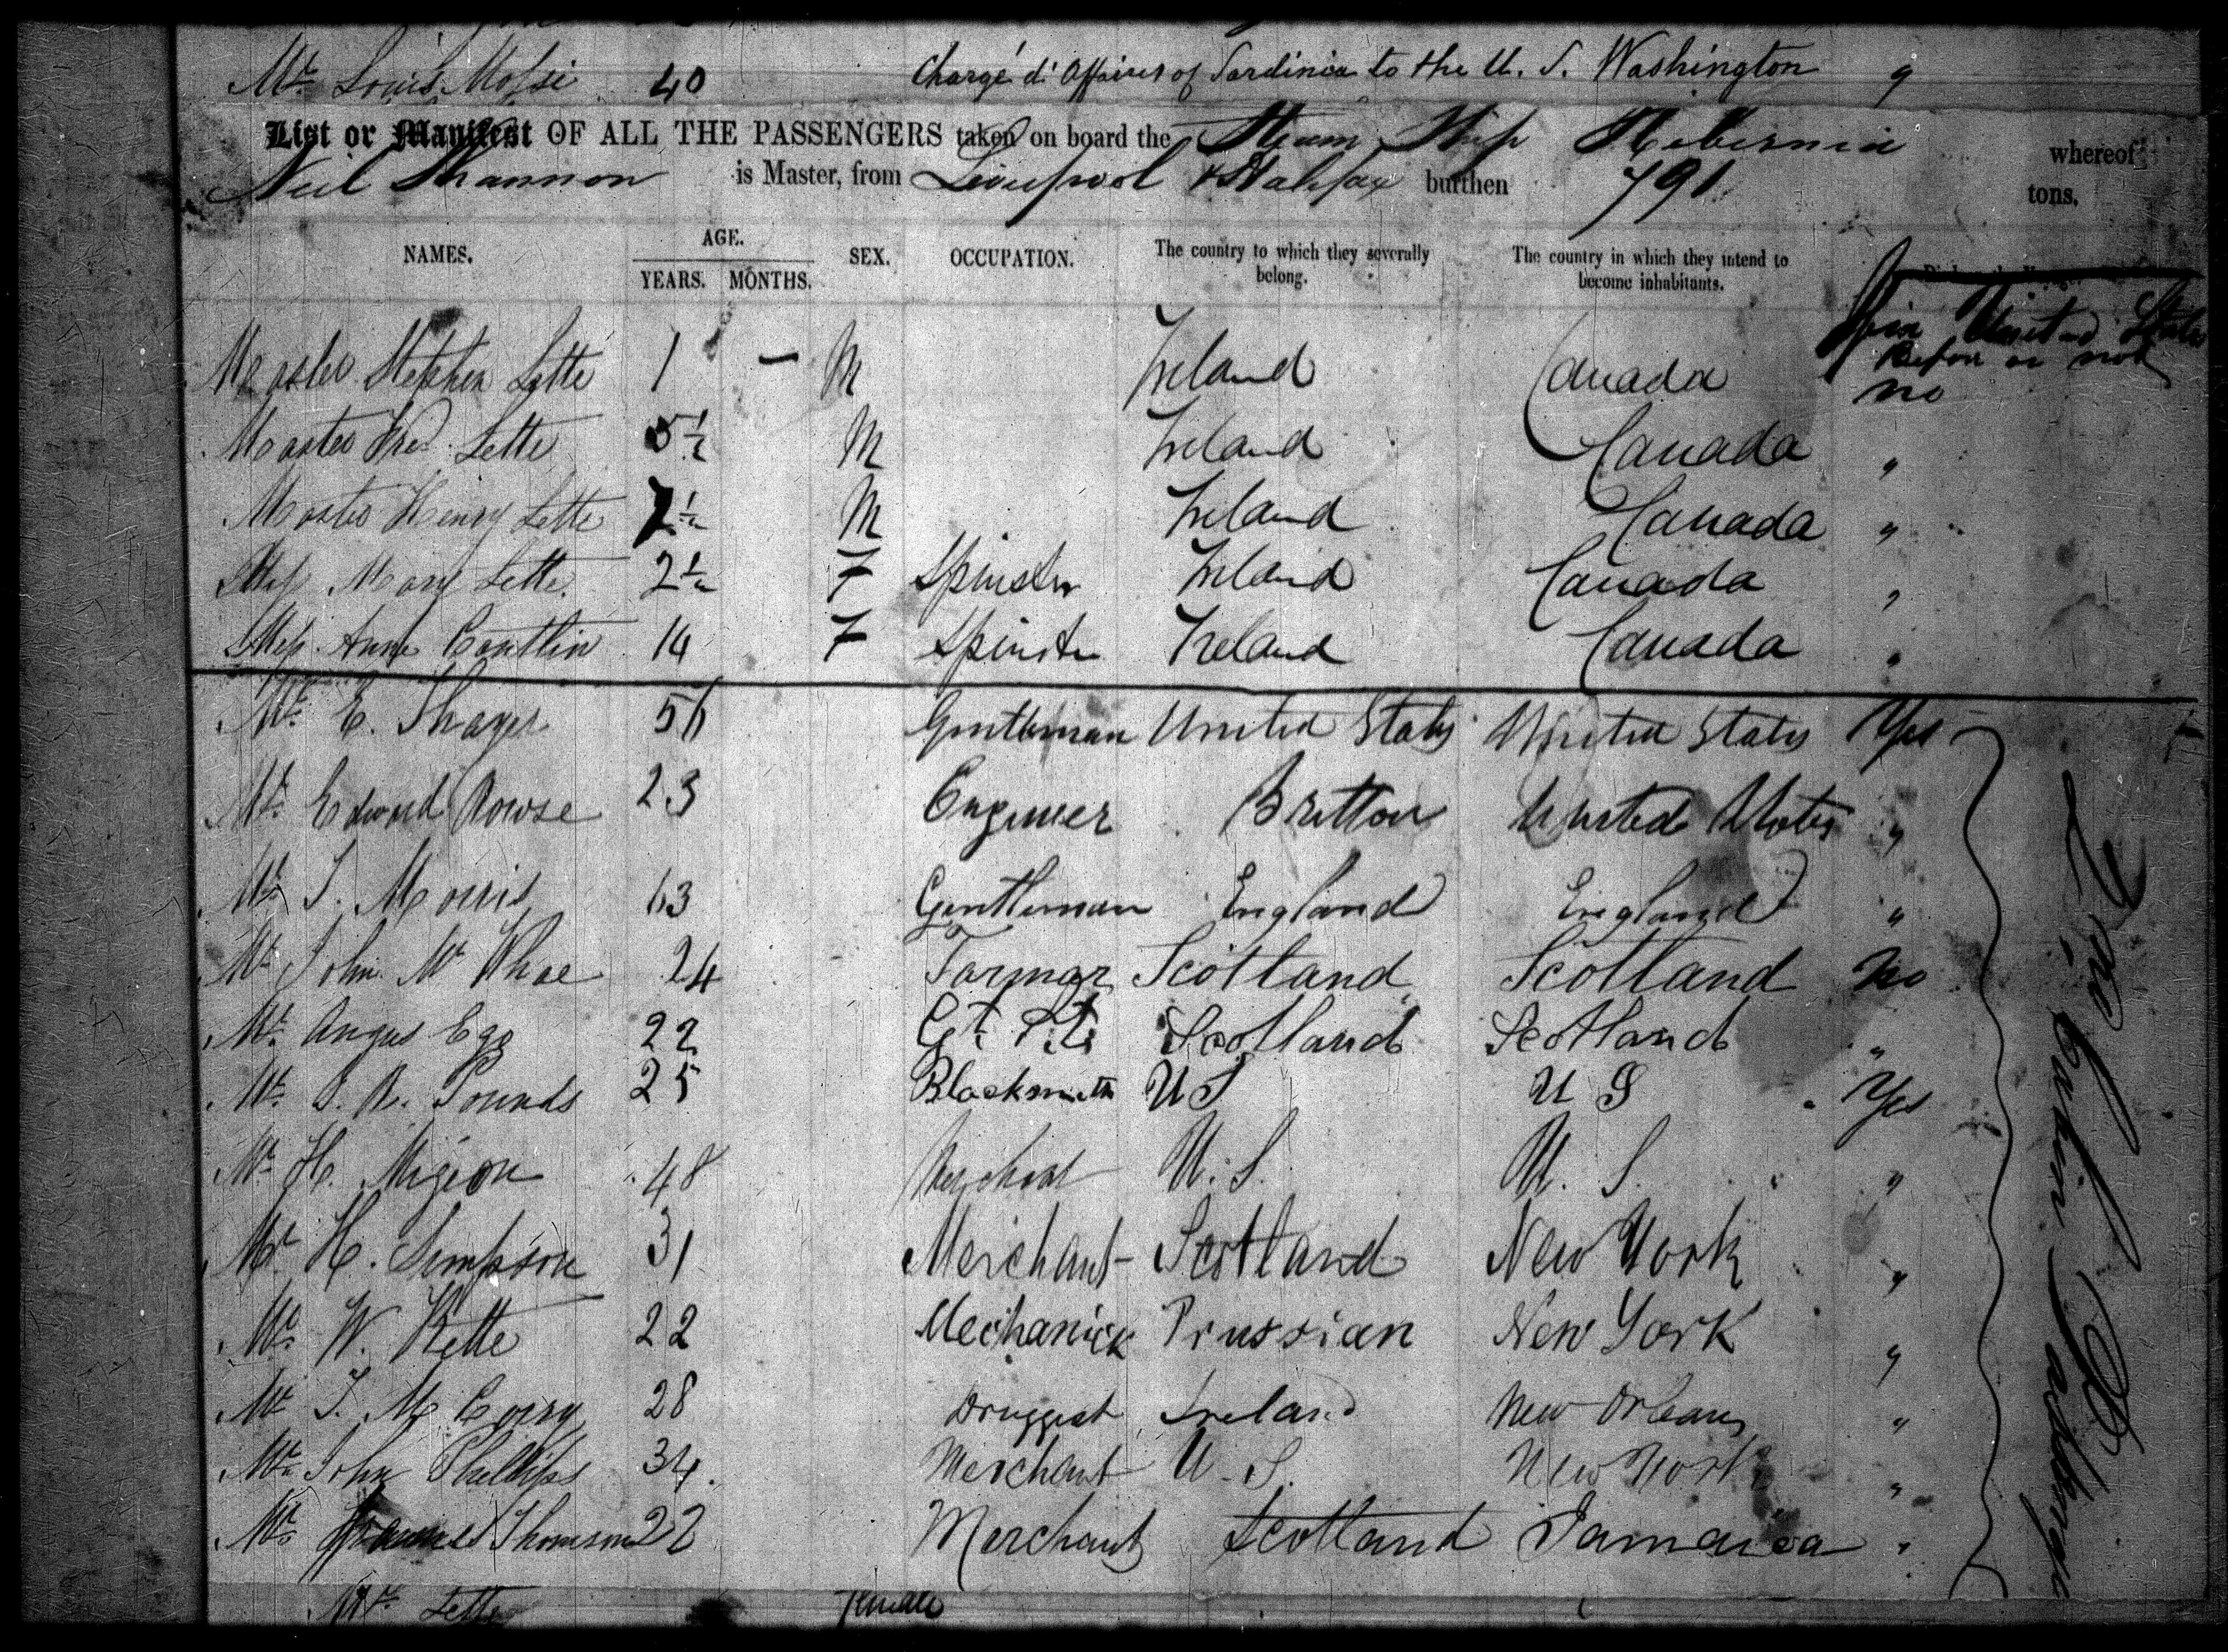 Mr. Louis Mossi 40 Chargé di Affaires of Sardinia to the U. S. Washington "
List or Manifest OF ALL THE PASSENGERS taken on board the Steam Ship Hibernia whereof
Neil Shannon is Master, from Liverpool & Halifax burthen 791 tons.
NAMES. AGE. YEARS. MONTHS. SEX. OCCUPATION. The country to which they severally belong. The country in which they intend to become inhabitants.
in United States
Before or not
Master Stephen Lette 1 — M Ireland Canada no
Master Fred Lette 5½ M Ireland Canada "
Master Henry Lette 7½ M Ireland Canada "
Miss Mary Lette 2½ F Spinster Ireland Canada "
Miss Anne 14 F Spinster Ireland Canada "
Mr. E. Thayer 51 Gentleman United States United States Yes
Mr. Edward Rowse 23 Engineer Britton United States "
Mr. J. Morris 63 Gentleman England England "
Mr. John Mc Whae 24 Farmer Scotland Scotland no
Mr. Angus Egg 22 Scotland Scotland "
Mr. Pounds 25 Blacksmith U S U S Yes
Mr. H. Migeon 48 Merchant U. S. U. S. "
Mr. H. Simpson 31 Merchant Scotland New York "
Mr. W. Kette 22 Mechanick Prussian New York "
Mr. J. Mc 28 Druggist Ireland New Orleans "
Mr. John Phillips 34. Merchant U. S. New York "
Mr. Thomson 22 Merchant Scotland Jamaica "
Cabin Passengers
Mr. Lette Female